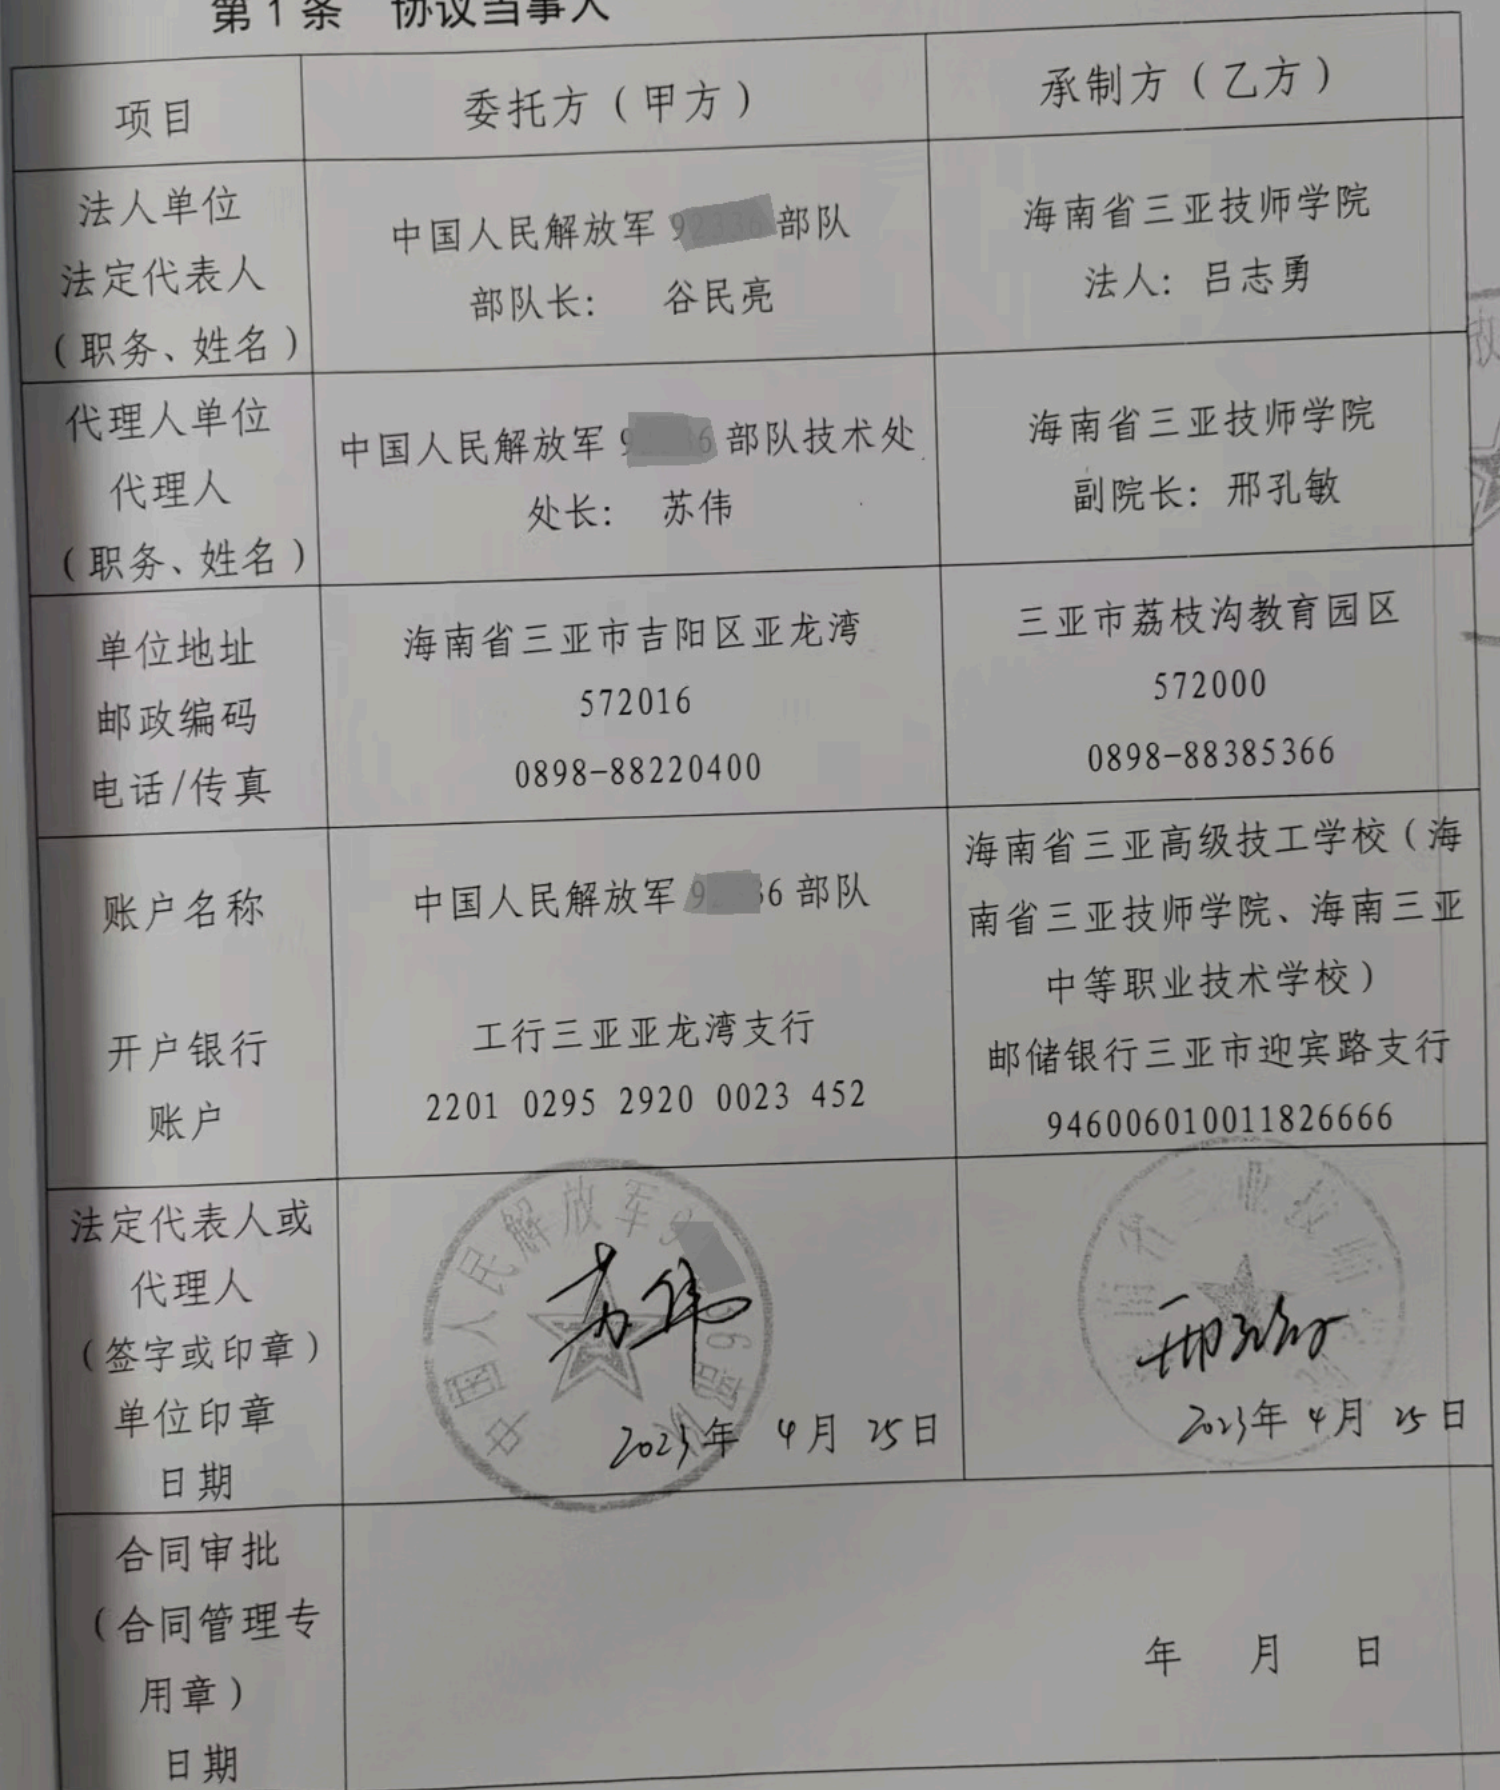 第1条 协议当事人
项目 委托方（甲方） 承制方（乙方）
法人单位
法定代表人
（职务、姓名）
中国人民解放军 部队
部队长： 谷民亮
海南省三亚技师学院
法人：吕志勇
代理人单位
代理人
（职务、姓名）
中国人民解放军 部队技术处
处长： 苏伟
海南省三亚技师学院
副院长：邢孔敏
单位地址
邮政编码
电话/传真
海南省三亚市吉阳区亚龙湾
572016
0898-88220400
三亚市荔枝沟教育园区
572000
0898-88385366
账户名称
开户银行
账户
中国人民解放军 部队
工行三亚亚龙湾支行
2201 0295 2920 0023 452
海南省三亚高级技工学校（海
南省三亚技师学院、海南三亚
中等职业技术学校）
邮储银行三亚市迎宾路支行
946006010011826666
法定代表人或
代理人
（签字或印章）
单位印章
日期
中国人民解放军 部队
苏伟
2023年 4月 25日
邢孔敏
2023年 4月 25日
合同审批
（合同管理专
用章）
日期
年 月 日